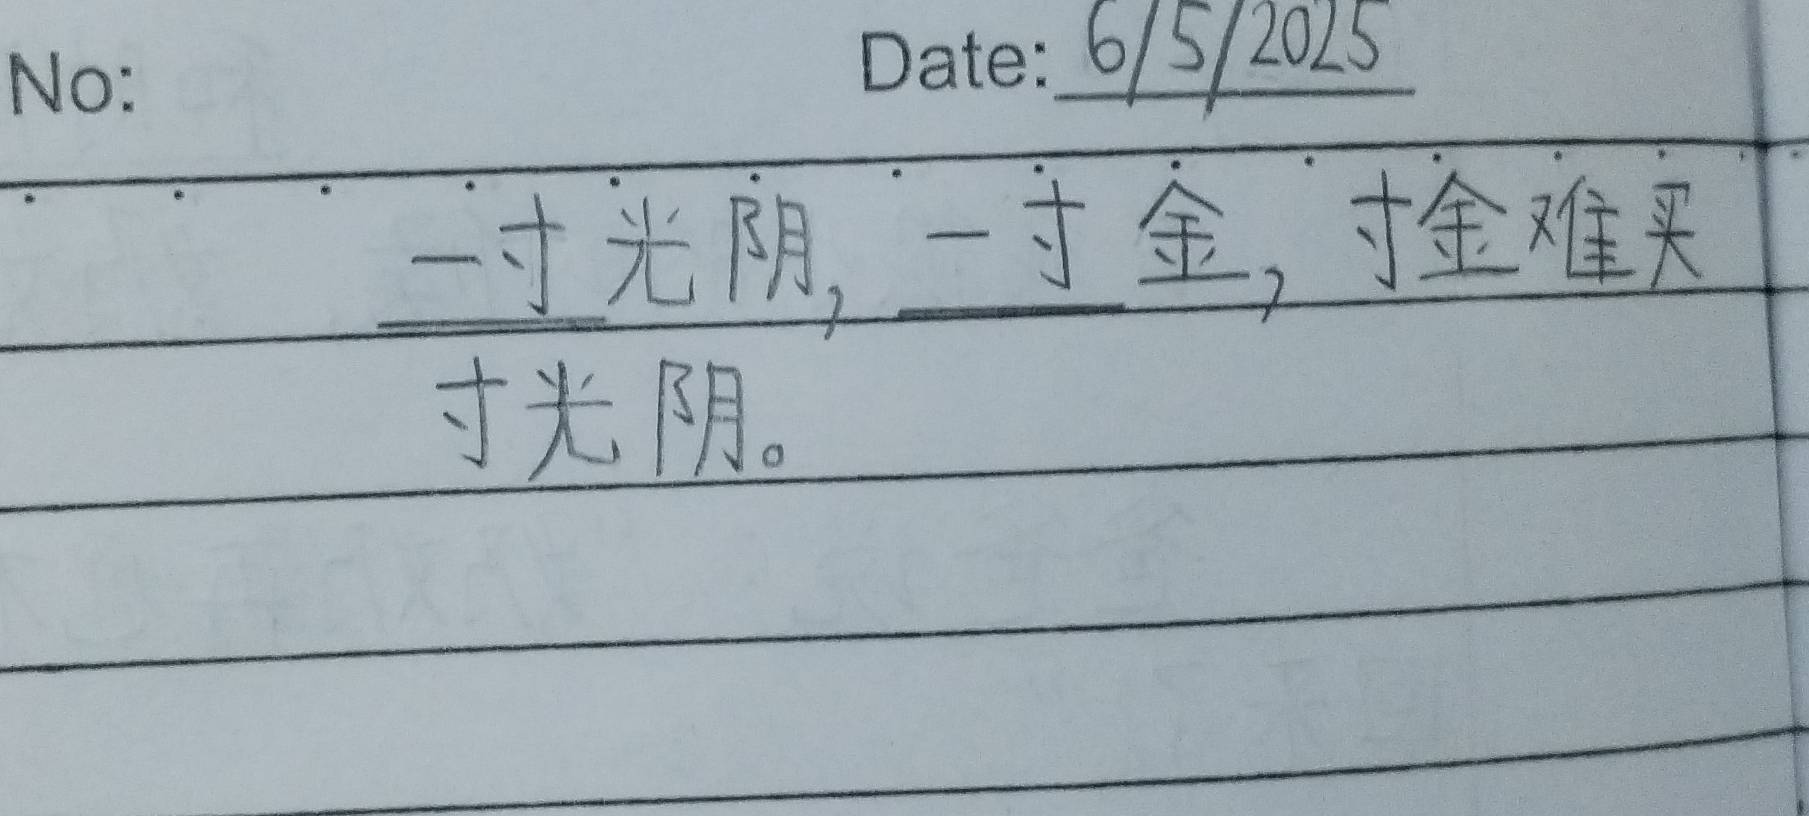 No: Date: 6/5/2025
一寸光阴，一寸金，寸金难买
寸光阴。